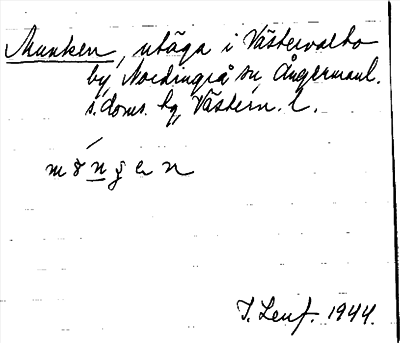 Munken, utäga i Västervalto
by Nordingrå sn Ångermanl.
s. doms. hg, Västern. l.
J. Lenf. 1944.